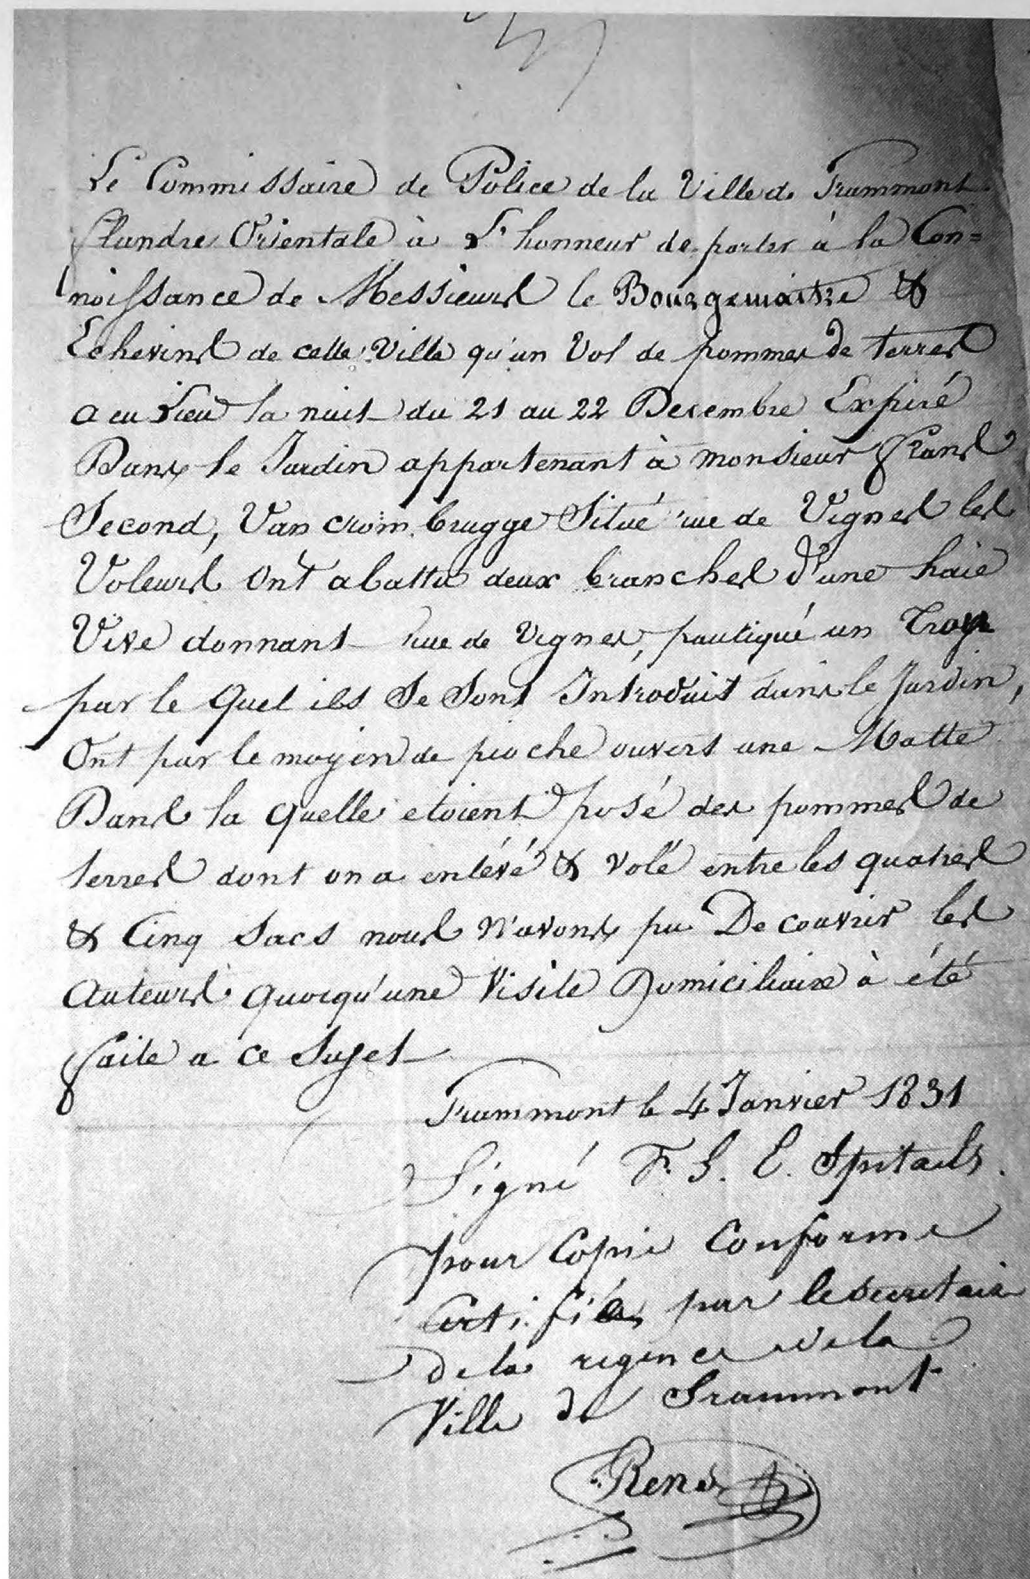 Le Commissaire de Police de la Ville de Grammont
flandre Orientale à L'honneur de porter à la Con=
noissance de Messieurs le Bourgemaitre &
Echevins de cette Ville qu'un Vol de pommes de terres
a eu Lieu la nuit du 21 au 22 Decembre Expiré
Dans le Jardin appartenant à monsieur frans
Second, Van crom.brugge Situé rue de Vignes les
Voleurs Ont abattu deux branches d'une haie
Vive donnant rue de Vignes, pratiqué un Trou
par le Quel ils Se Sont Introduit dans le Jardin,
Ont par le moyen de pioche ouvert une Motte
Dans la Quelle etoient posé des pommes de
terres dont on a enlévé & volé entre les quatres
& Cinq Sacs nous N'avons pu De couvrir les
Auteurs quoiqu'une Visite Domiciliaire à été
faite a ce Sujet
Grammont le 4 Janvier 1831
Signé F. S. E. Spitaels.
pour Copie Conforme
Certifiée par le secretaire
de la regence de la
Ville de Grammont